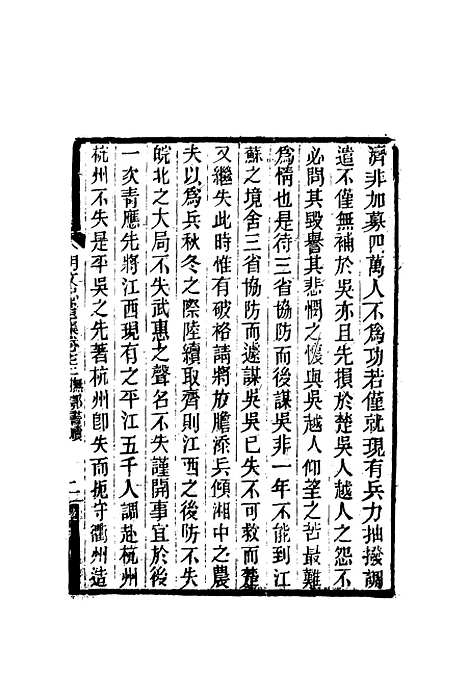 濟非加募四萬人不爲功若僅就現有兵力抽撥調
遣不僅無補於吳亦且先損於楚吳人越人之怨不
必問其毀譽其悲憫之懷與吳越人仰望之苦最難
爲情也是待三省協防而後謀吳非一年不能到江
蘇之境舍三省協防而遽謀吳吳已失不可救而楚
又繼失此時惟有破格請將放膽添兵傾湘中之農
夫以爲兵秋冬之際陸續取齊則江西之後防不失
皖北之大局不失武惠之聲名不失謹開事宜於後
一次青應先將江西現有之平江五千人調赴杭州
杭州不失是平吳之先著杭州卽失而扼守衢州造
撫鄂書牘